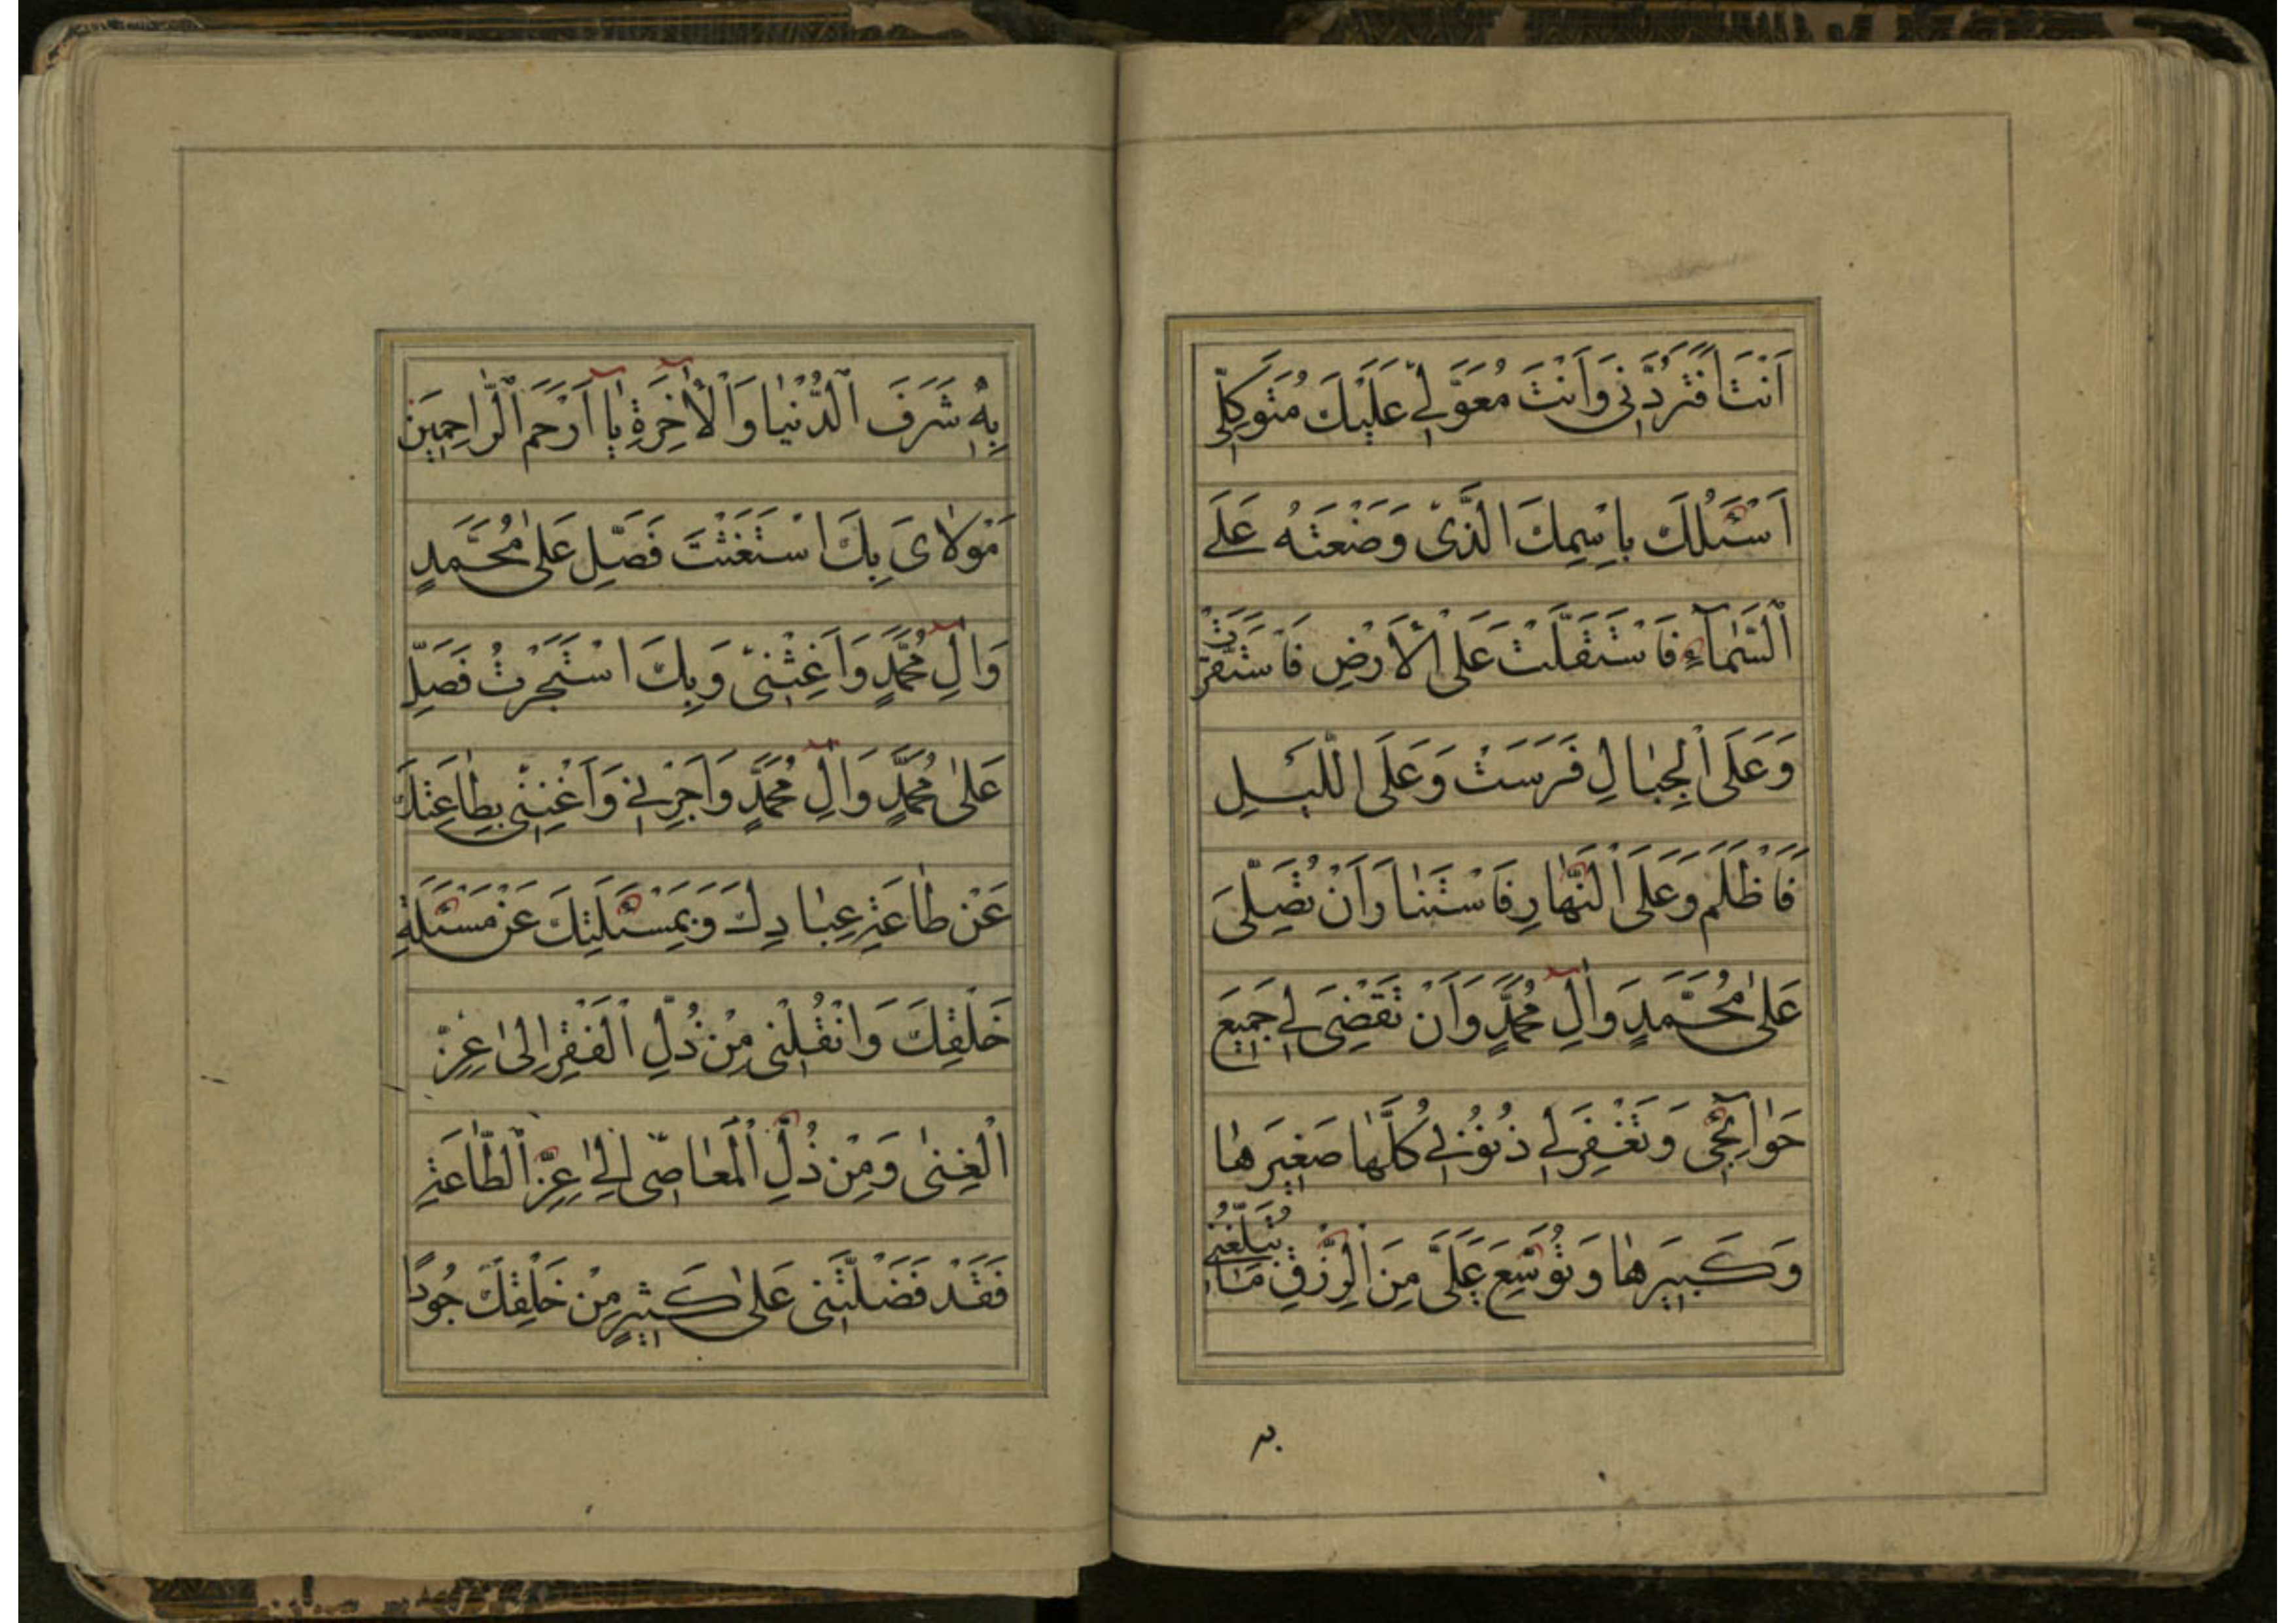 اَنْتَ اَفَتَرُدُّنِى وَاَنْتَ مُعَوَّلِى عَلَيْكَ مُتَوَكِّلِى
اَسْئَلُكَ بِاسْمِكَ الَّذِى وَضَعْتَهُ عَلَى
السَّمَآءِ فَاسْتَقَلَّتْ عَلَى الْاَرْضِ فَاسْتَقَرَّتْ
وَعَلَى الْجِبَالِ فَرَسَتْ وَعَلَى اللَّيْلِ
فَاَظْلَمَ وَعَلَى النَّهَارِ فَاسْتَنَارَ اَنْ تُصَلِّىَ
عَلٰى مُحَمَّدٍ وَاٰلِ مُحَمَّدٍ وَاَنْ تَقْضِىَ لِى جَمِيعَ
حَوَآئِجِى وَتَغْفِرَ لِى ذُنُوبِى كُلَّهَا صَغِيرَهَا
وَكَبِيرَهَا وَتُوَسِّعَ عَلَىَّ مِنَ الرِّزْقِ مَا تُبَلِّغُنِى
بِهِ
بِهِ شَرَفَ الدُّنْيَا وَالْاٰخِرَةِ يَآ اَرْحَمَ الرَّاحِمِينَ
مَوْلَاىَ بِكَ اسْتَغَثْتُ فَصَلِّ عَلٰى مُحَمَّدٍ
وَاٰلِ مُحَمَّدٍ وَاَغِثْنِى وَبِكَ اسْتَجَرْتُ فَصَلِّ
عَلٰى مُحَمَّدٍ وَاٰلِ مُحَمَّدٍ وَاَجِرْنِى وَاَغْنِنِى بِطَاعَتِكَ
عَنْ طَاعَةِ عِبَادِكَ وَبِمَسْئَلَتِكَ عَنْ مَسْئَلَةِ
خَلْقِكَ وَانْقُلْنِى مِنْ ذُلِّ الْفَقْرِ اِلٰى عِزِّ
الْغِنٰى وَمِنْ ذُلِّ الْمَعَاصِى اِلٰى عِزِّ الطَّاعَةِ
فَقَدْ فَضَّلْتَنِى عَلٰى كَثِيرٍ مِنْ خَلْقِكَ جُودًا